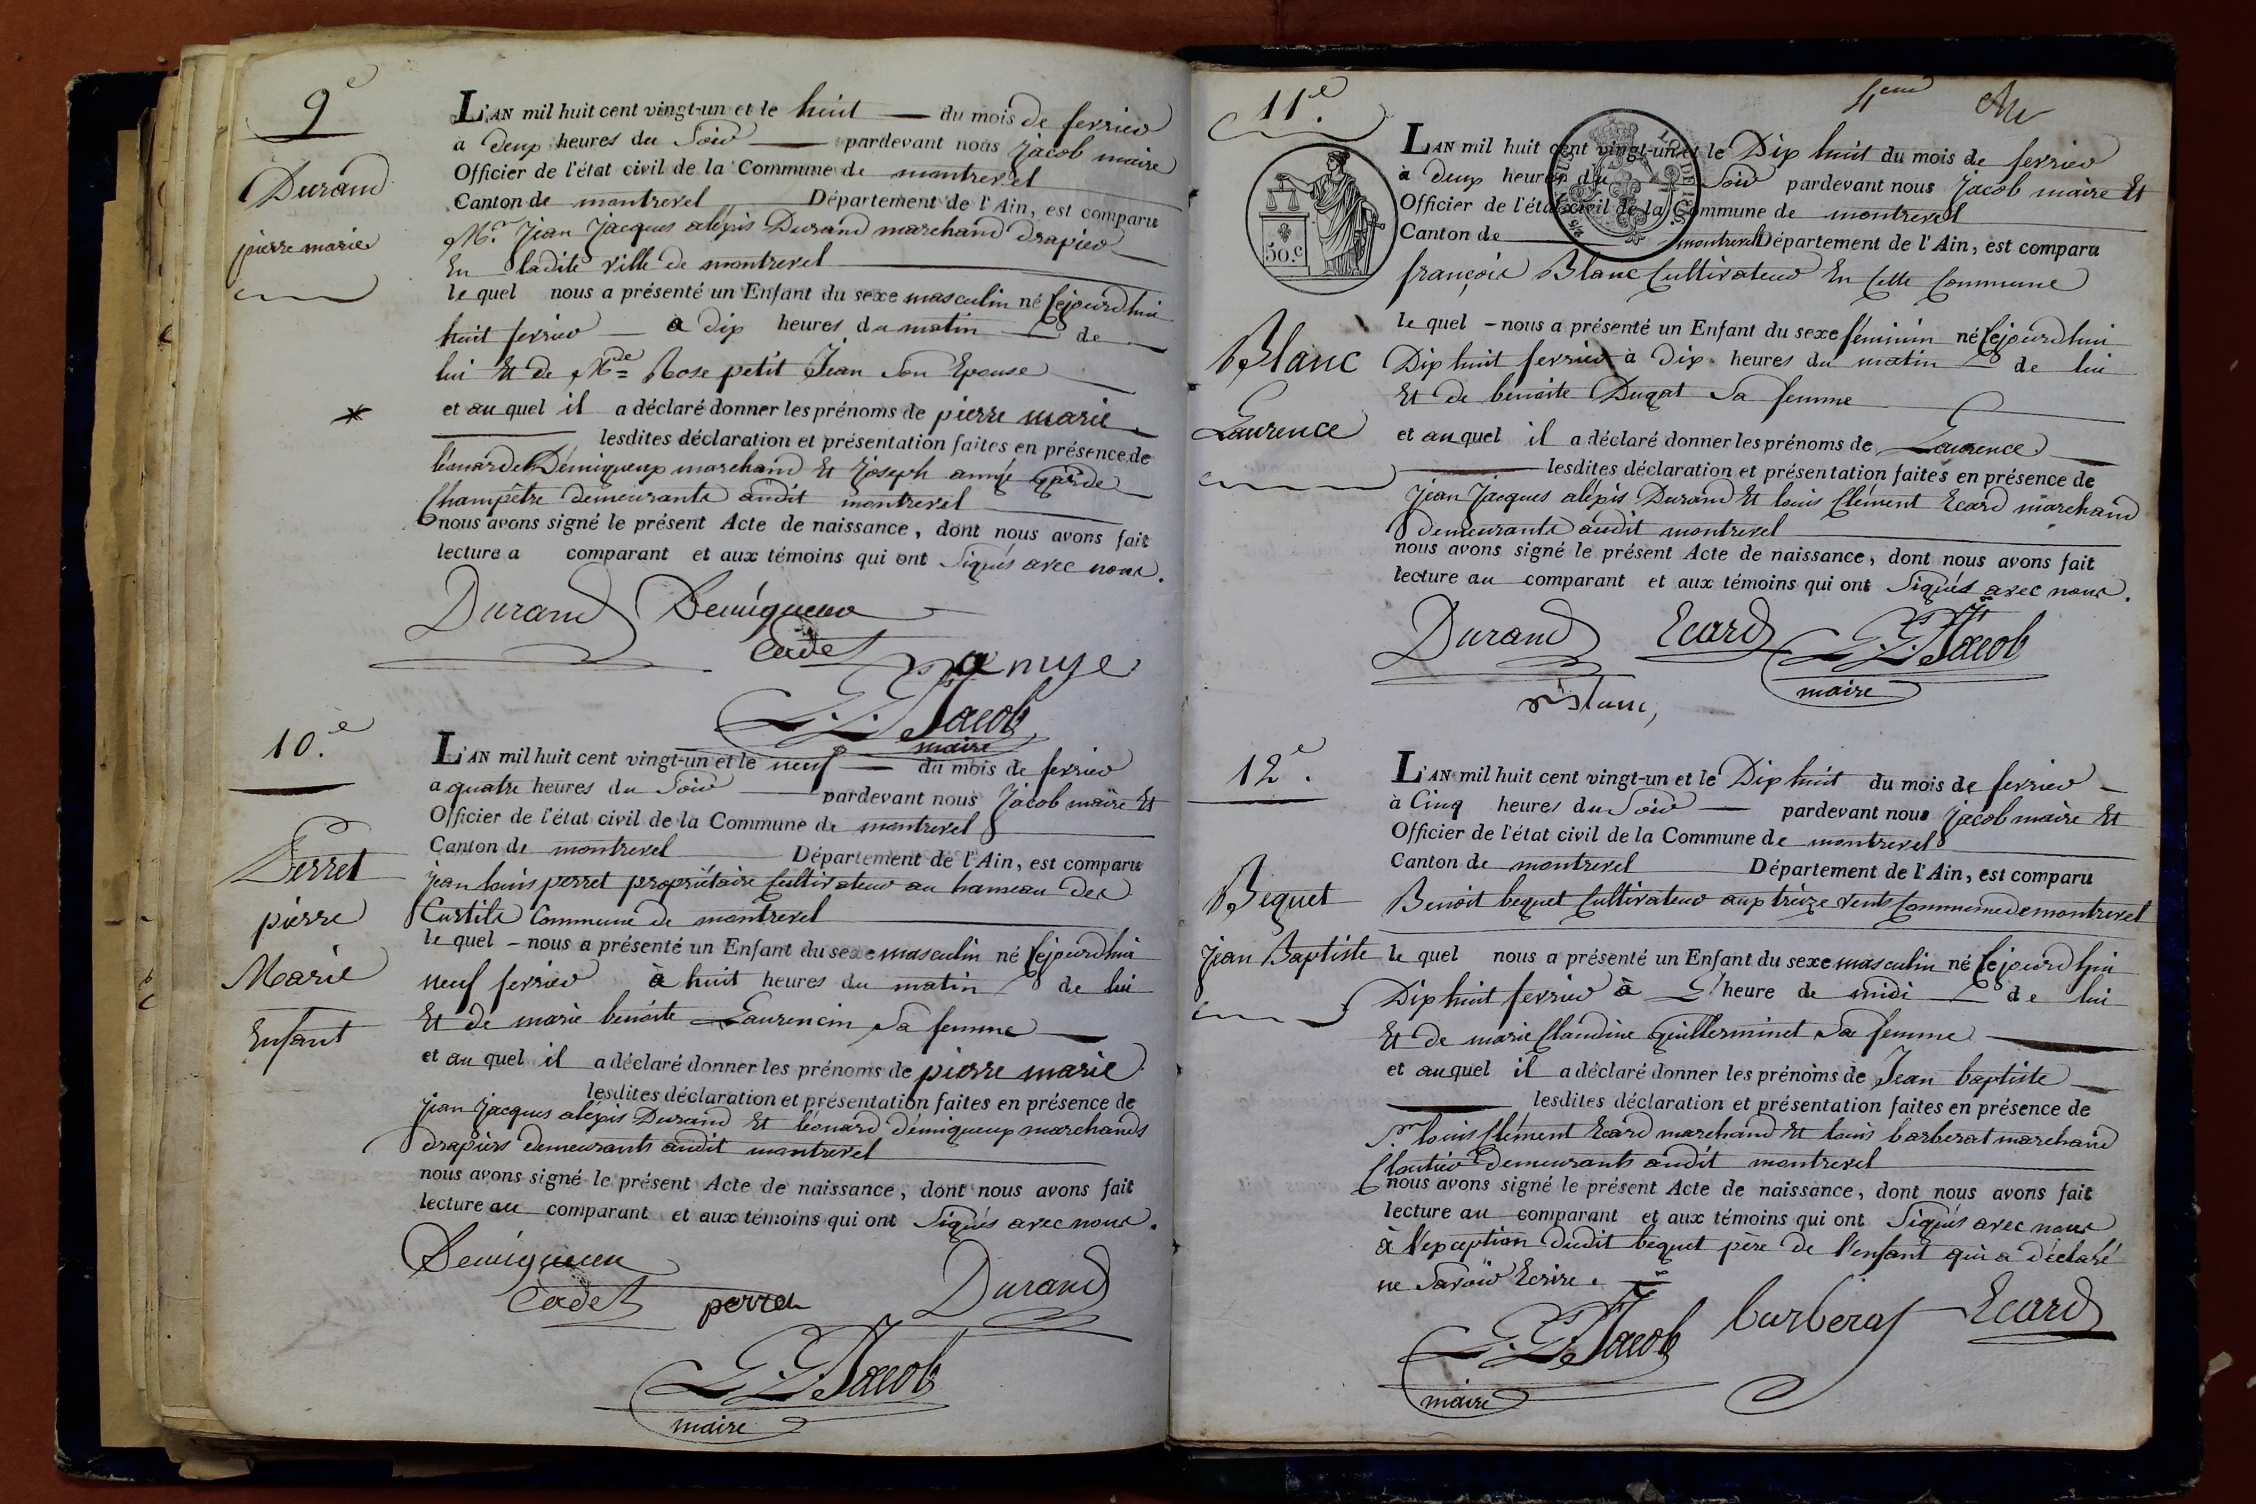 9e
Durand
pierre marie
L'AN mil huit cent vingt-un et le huit du mois de fevrier
a deux heures du Soir pardevant nous Jacob maire
Officier de l'état civil de la Commune de montrevel
Canton de montrevel Département de l'Ain, est comparu
Mr. Jean Jacques aléxis Durand marchand drapier
En ladite ville de montrevel
le quel nous a présenté un Enfant du sexe masculin né Cejourd'hui
huit fevrier a dix heures du matin de
lui Et de Mde Rose petit Jean Son Epouse
et au quel il a déclaré donner les prénoms de pierre marie
lesdites déclaration et présentation faites en présence de
léonard Démiqueux marchand Et Joseph amyé garde
Champêtre demeurants audit montrevel
nous avons signé le présent Acte de naissance, dont nous avons fait
lecture a comparant et aux témoins qui ont Signés avec nous.
Durand Demiqueux
Cadet amye
Jacob
maire
10.e
Perret
pierre
Marie
Enfant
L'AN mil huit cent vingt-un et le neuf du mois de fevrier
a quatre heures du Soir pardevant nous Jacob maire Et
Officier de l'état civil de la Commune de montrevel
Canton de montrevel Département de l'Ain, est comparu
Jean louis perret propriétaire Cultivateur au hameau des
Curtils Commune de montrevel
le quel nous a présenté un Enfant du sexe masculin né Cejourd'hui
neuf fevrier à huit heures du matin de lui
Et de marie benoite Laurencin Sa femme
et au quel il a déclaré donner les prénoms de pierre marie
lesdites déclaration et présentation faites en présence de
Jean Jacques aléxis Durand Et léonard démiqueux marchands
drapiers demeurants audit montrevel
nous avons signé le présent Acte de naissance, dont nous avons fait
lecture au comparant et aux témoins qui ont Signés avec nous.
Demiqueux
Cadet perret Durand
Jacob
maire
4eme
11.e
50.c
Blanc
Laurence
L'AN mil huit cent vingt-un et le Dix huit du mois de fevrier
à deux heures du Soir pardevant nous Jacob maire Et
Officier de l'état civil de la Commune de montrevel
Canton de montrevel Département de l'Ain, est comparu
françois Blanc Cultivateur En Cette Commune
le quel nous a présenté un Enfant du sexe féminin né Cejourd'hui
Dix huit fevrier à dix heures du matin de lui
Et de benoite Dugat Sa femme
et au quel il a déclaré donner les prénoms de Laurence
lesdites déclaration et présentation faites en présence de
Jean Jacques aléxis Durand Et louis Clément Ecard marchand
demeurants audit montrevel
nous avons signé le présent Acte de naissance, dont nous avons fait
lecture au comparant et aux témoins qui ont Signés avec nous.
Durand Ecard Jacob
maire
Blanc
12e.
Bequet
Jean Baptiste
L'AN mil huit cent vingt-un et le Dix huit du mois de fevrier
à Cinq heures du Soir pardevant nous Jacob maire Et
Officier de l'état civil de la Commune de montrevel
Canton de montrevel Département de l'Ain, est comparu
Benoit bequet Cultivateur aux treize vents Commune de montrevel
le quel nous a présenté un Enfant du sexe masculin né Cejourd'hui
Dix huit fevrier à L'heure de midi de lui
Et de marie Claudine Guillerminet Sa femme
et au quel il a déclaré donner les prénoms de Jean baptiste
lesdites déclaration et présentation faites en présence de
Sr. louis Clément Ecard marchand Et louis barberat marchand
Cloutier demeurants audit montrevel
nous avons signé le présent Acte de naissance, dont nous avons fait
lecture au comparant et aux témoins qui ont Signés avec nous
à l'exception dudit bequet père de l'enfant qui a déclaré
ne Savoir Ecrire.
Jacob barberat Ecard
maire